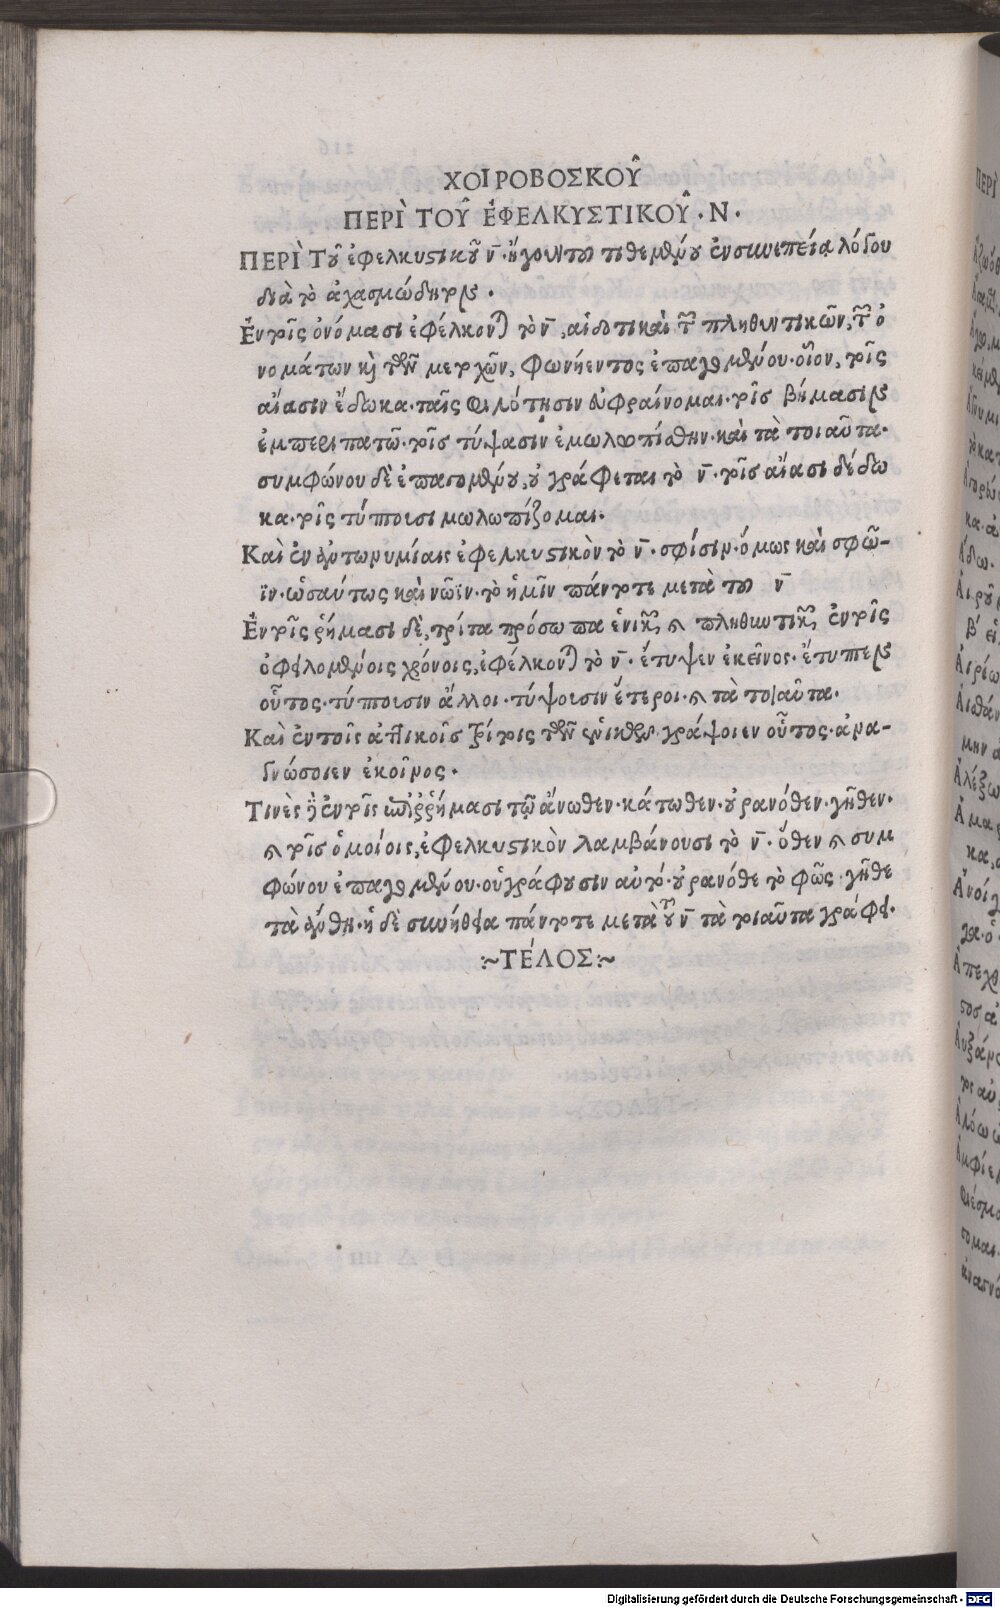 ΧΟΙΡΟΒΟΣΚΟΥ͂
ΠΕΡῚ ΤΟΥ͂ ἘΦΕΛΚΥΣΤΙΚΟΥ͂ · Ν ·
ΠΕΡῚ Τοῦ ἐφελκυστικοῦ ν̄ · ἤγουν του τιθεμένου ἐν συνεπεία λόγου
διὰ τὸ ἀχασμώδητον ·
Ἐν τοῖς ὀνόμασι ἐφέλκονται τὸ ν̄, αἱ δοτικαὶ τῶν πληθυντικῶν, τῶν ὀ
νομάτων καὶ τῶν μετοχῶν, φωνήεντος ἐπαγομένου · οἷον, τοῖς
αἴασιν ἔδωκα · ταῖς φιλότησιν εὐφραίνομαι · τοῖς βήμασιν
ἐμπεριπατῶ · τοῖς τύψασιν ἐμωλωπίσθην · καὶ τὰ τοιαῦτα ·
συμφώνου δὲ ἐπαγομένου, οὐ γράφεται τὸ ν̄ · τοῖς αἴασι δέδω
κα · τοῖς τύπτουσι μωλωπίζομαι ·
Καὶ ἐν ἀντωνυμίαις ἐφελκυστικὸν τὸ ν̄ · σφίσιν · ὁμως καὶ σφῶ-
ϊν · ὡσαύτως καὶ νῶϊν · τὸ ἡμῖν πάντοτε μετὰ του ν̄
Ἐν τοῖς ῥήμασι δὲ, τρίτα πρόσωπα ἑνικῶν καὶ πληθυντικῶν ἐν τοῖς
ὀφειλομένοις χρόνοις, ἐφέλκονται τὸ ν̄ · ἔτυψεν ἐκεῖνος · ἔτυπτεν
οὗτος · τύπτουσιν ἄλλοι · τύψουσιν ἕτεροι · καὶ τὰ τοιαῦτα ·
Καὶ ἐν τοῖς εὐκτικοῖς τρίτοις τῶν ἑνικῶν γράψοιεν οὗτος · ἀνα-
γνώσοιεν ἐκεῖνος ·
Τινὲς δὲ ἐν τοῖς ἐπιῤῥήμασι τῷ ἄνωθεν · κάτωθεν · οὐρανόθεν · γῆθεν ·
καὶ τοῖς ὁμοίοις, ἐφελκυστικὸν λαμβάνουσι τὸ ν̄ · ὅθεν καὶ συμ
φώνου ἐπαγομένου · οὐ γράφουσιν αὐτό · οὐρανόθε τὸ φῶς · γῆθε
τὰ ἄνθη · ἡ δὲ συνήθεια πάντοτε μετὰ τοῦ ν̄ τὰ τοιαῦτα γράφει ·
:~ΤΈΛΟΣ:~
Digitalisierung gefördert durch die Deutsche Forschungsgemeinschaft - DFG